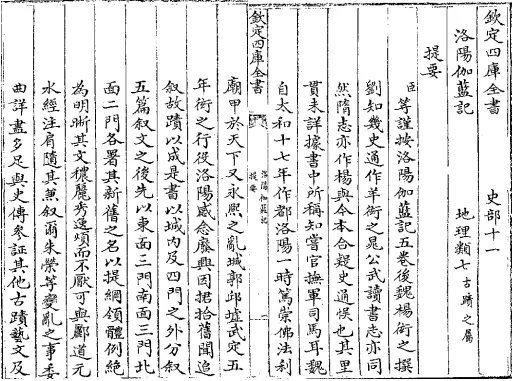 欽定四庫全書 史部十一
洛陽伽藍記 地理類七古蹟之屬
提要
臣等謹按洛陽伽藍記五卷後魏楊衒之撰
劉知幾史通作羊衒之晁公武讀書志亦同
然隋志亦作楊與今本合疑史通悞也其里
貫未詳據書中所稱知嘗官撫軍司馬耳魏
自太和十七年作都洛陽一時篤崇佛法利
欽定四庫全書
洛陽伽藍記
提要
廟甲於天下又永熙之亂城郭邱墟武定五
年衒之行役洛陽感念廢興因捃拾舊聞追
叙故蹟以成是書以城内及四門之外分叙
五篇叙文之後先以東面三門南面三門北
面二門各署其新舊之名以提綱領體例絶
為明晰其文穠麗秀逸煩而不厭可與酈道元
水經注肩隨其兼叙爾朱榮等變亂之事委
曲詳盡多足與史傳參証其他古蹟藝文及